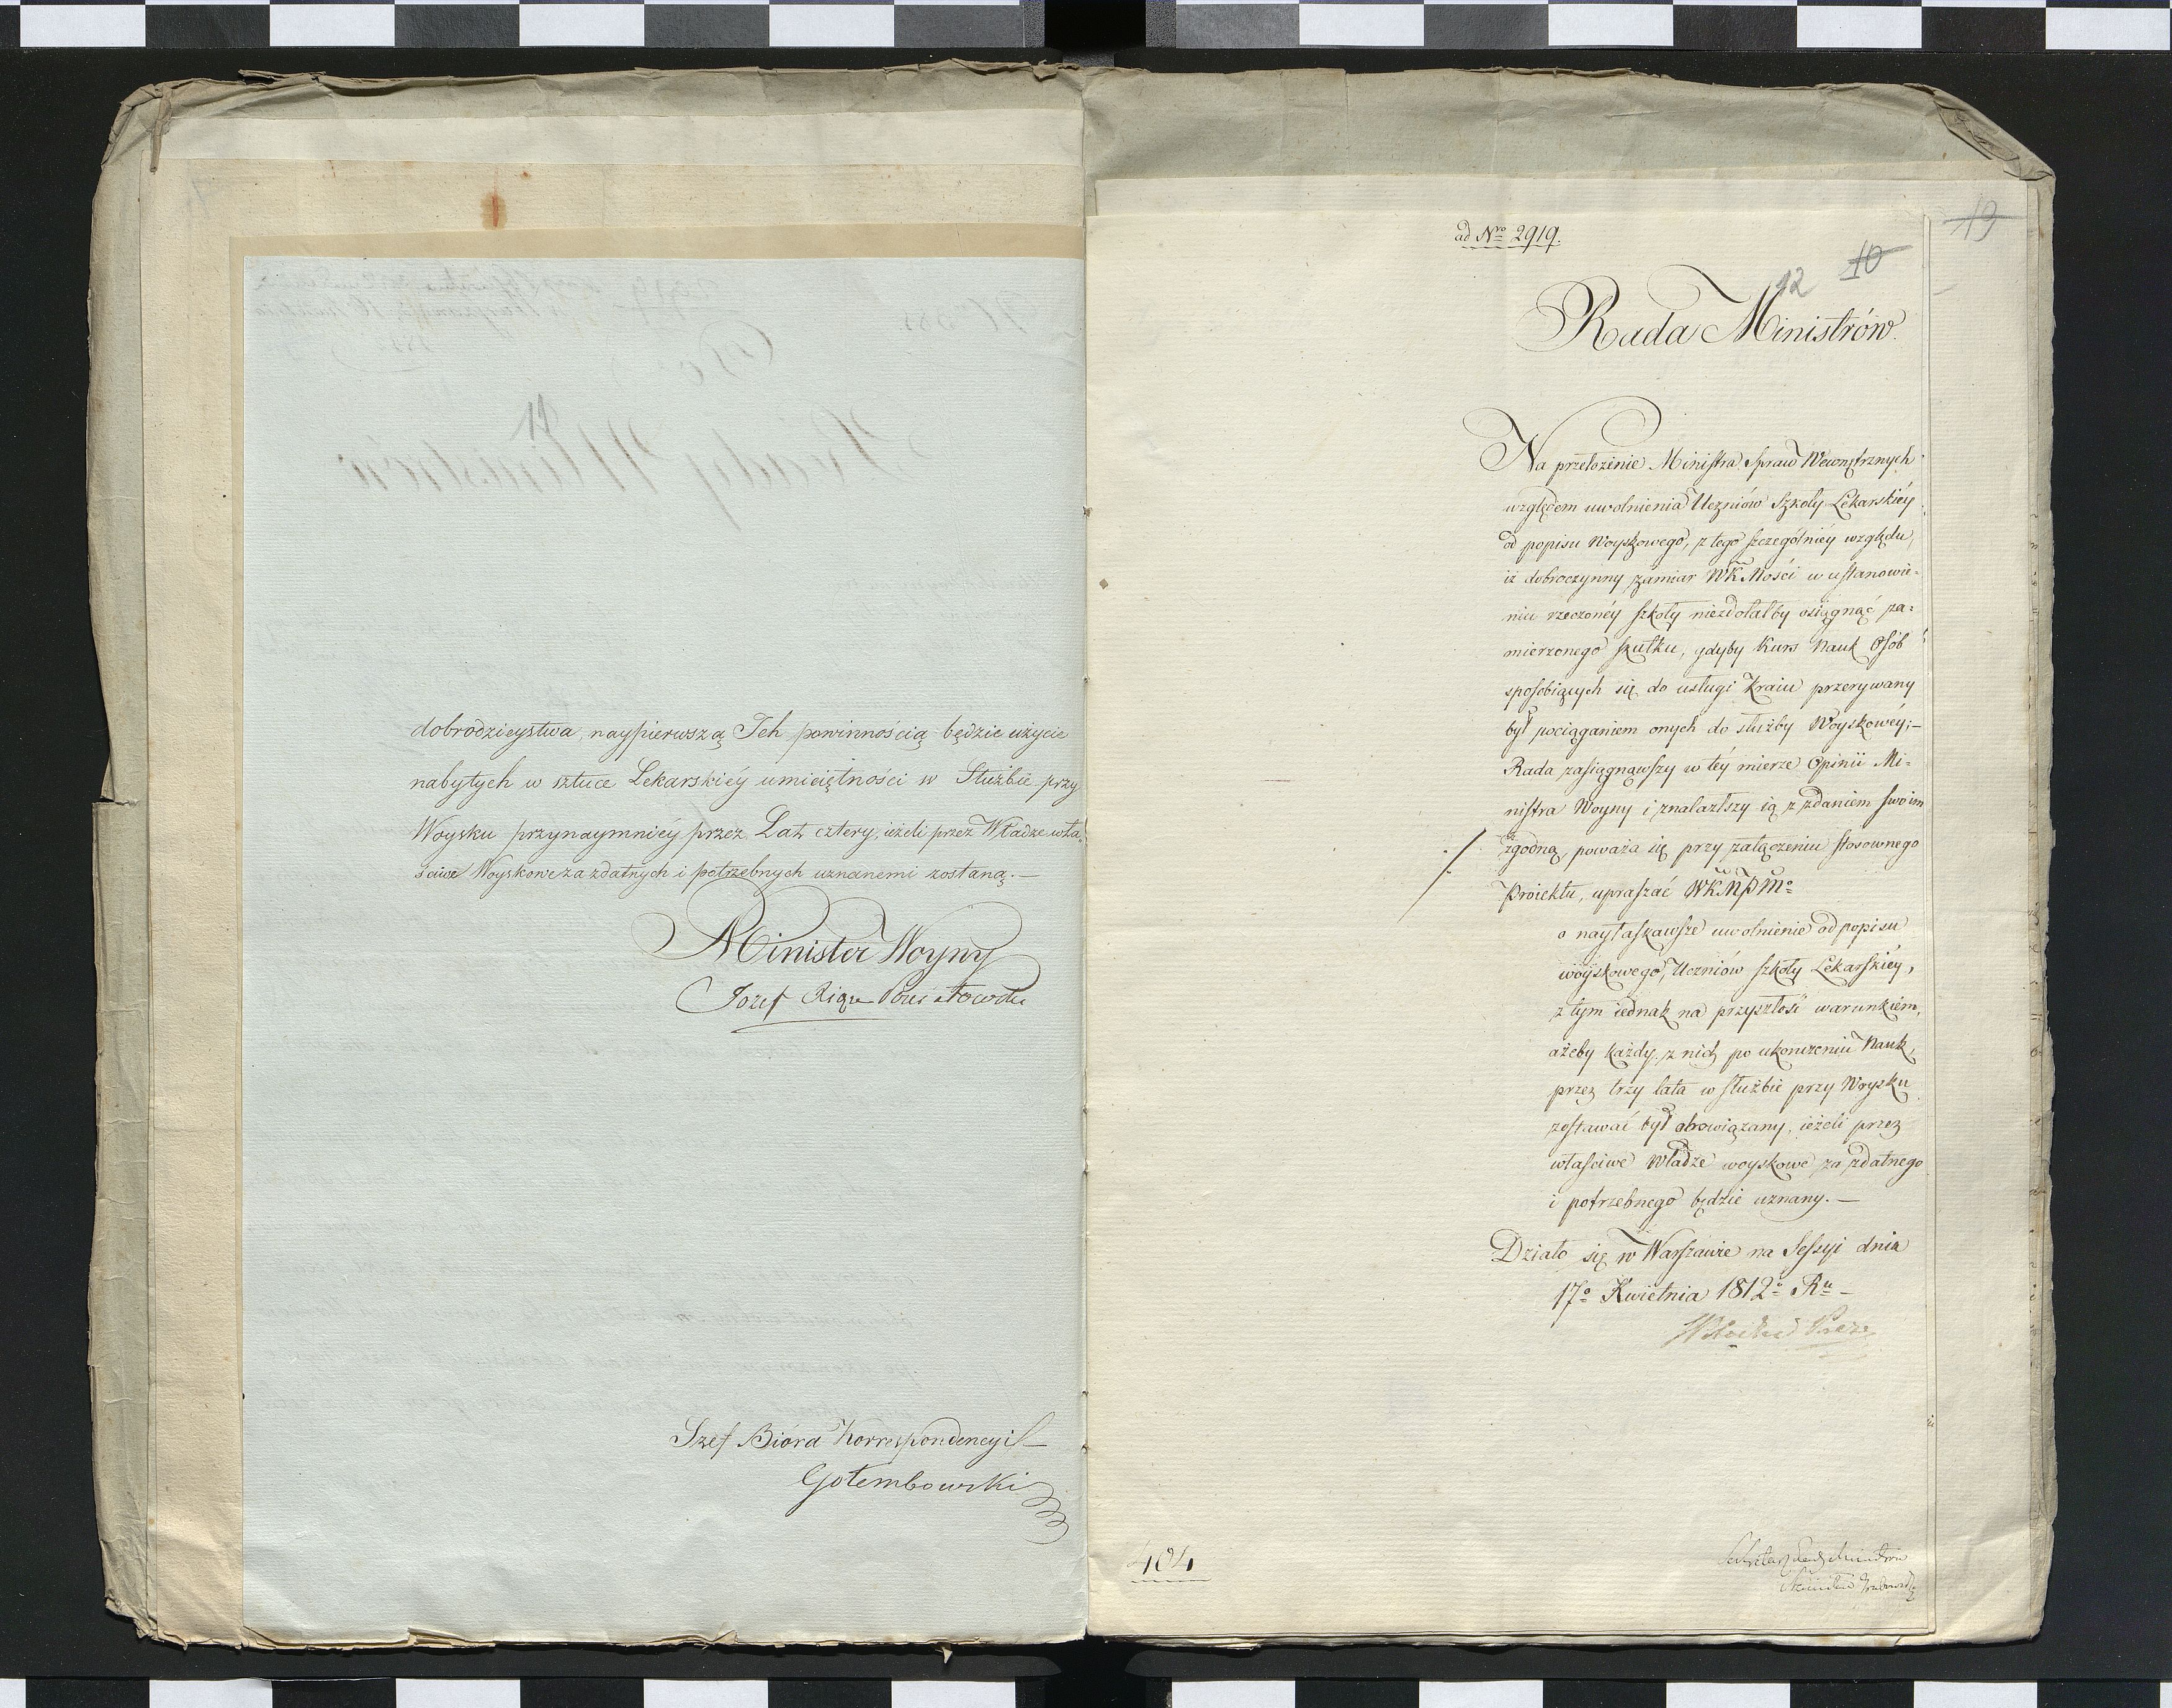 dobrodzieystwa, naypierwszą Ich powinnością będzie użycie
nabytych w sztuce Lekarskiéy umiejętności w Służbie przy
Woysku przynaymniéy przez Lat cztery, iżeli przez Władze wła-
ściwe Woyskowe za zdatnych i potrzebnych uznanemi zostaną.—
Minister Woyny
Jozef Xiąże Poniatowski
Szef Bióra Korrespondencyi
Gołembowski
ad Nro 2919.
12 10
19
Rada Ministrów.
Na przełożenie Ministra Spraw Wewnętrznych
względem uwolnienia Uczniów Szkoły Lekarskiéy
od popisu Woyskowego, z tego szczególniéy względu,
iż dobroczynny zamiar WKMości w ustanowie-
niu rzeczonéy szkoły niezdołałby osiągnąć za-
mierzonego skutku, gdyby kurs Nauk Osób
sposobiących się do usługi Kraiu przerywany
był pociąganiem onych do służby Woyskowéy;—
Rada zasiągnąwszy w téy mierze Opinii Mi-
nistra Woyny i znalazłszy ią z zdaniem swoim
zgodną, poważa się przy załączeniu stosownego
Proiektu, upraszać WKMPMo
o nayłaskawsze uwolnienie od popisu
woyskowego, Uczniów szkoły Lekarskiéy,
z tym iednak na przyszłość warunkiem,
ażeby każdy z nich po ukończeniu Nauk,
przez trzy lata w służbie przy Woysku
zostawać był obowiązany, ieżeli przez
właściwe Władze woyskowe za zdatnego
i potrzebnego będzie uznany.—
Działo się w Warszawie na Sessyi dnia
17o Kwietnia 1812o Ru —
404
Sekretarz Rady Ministrów